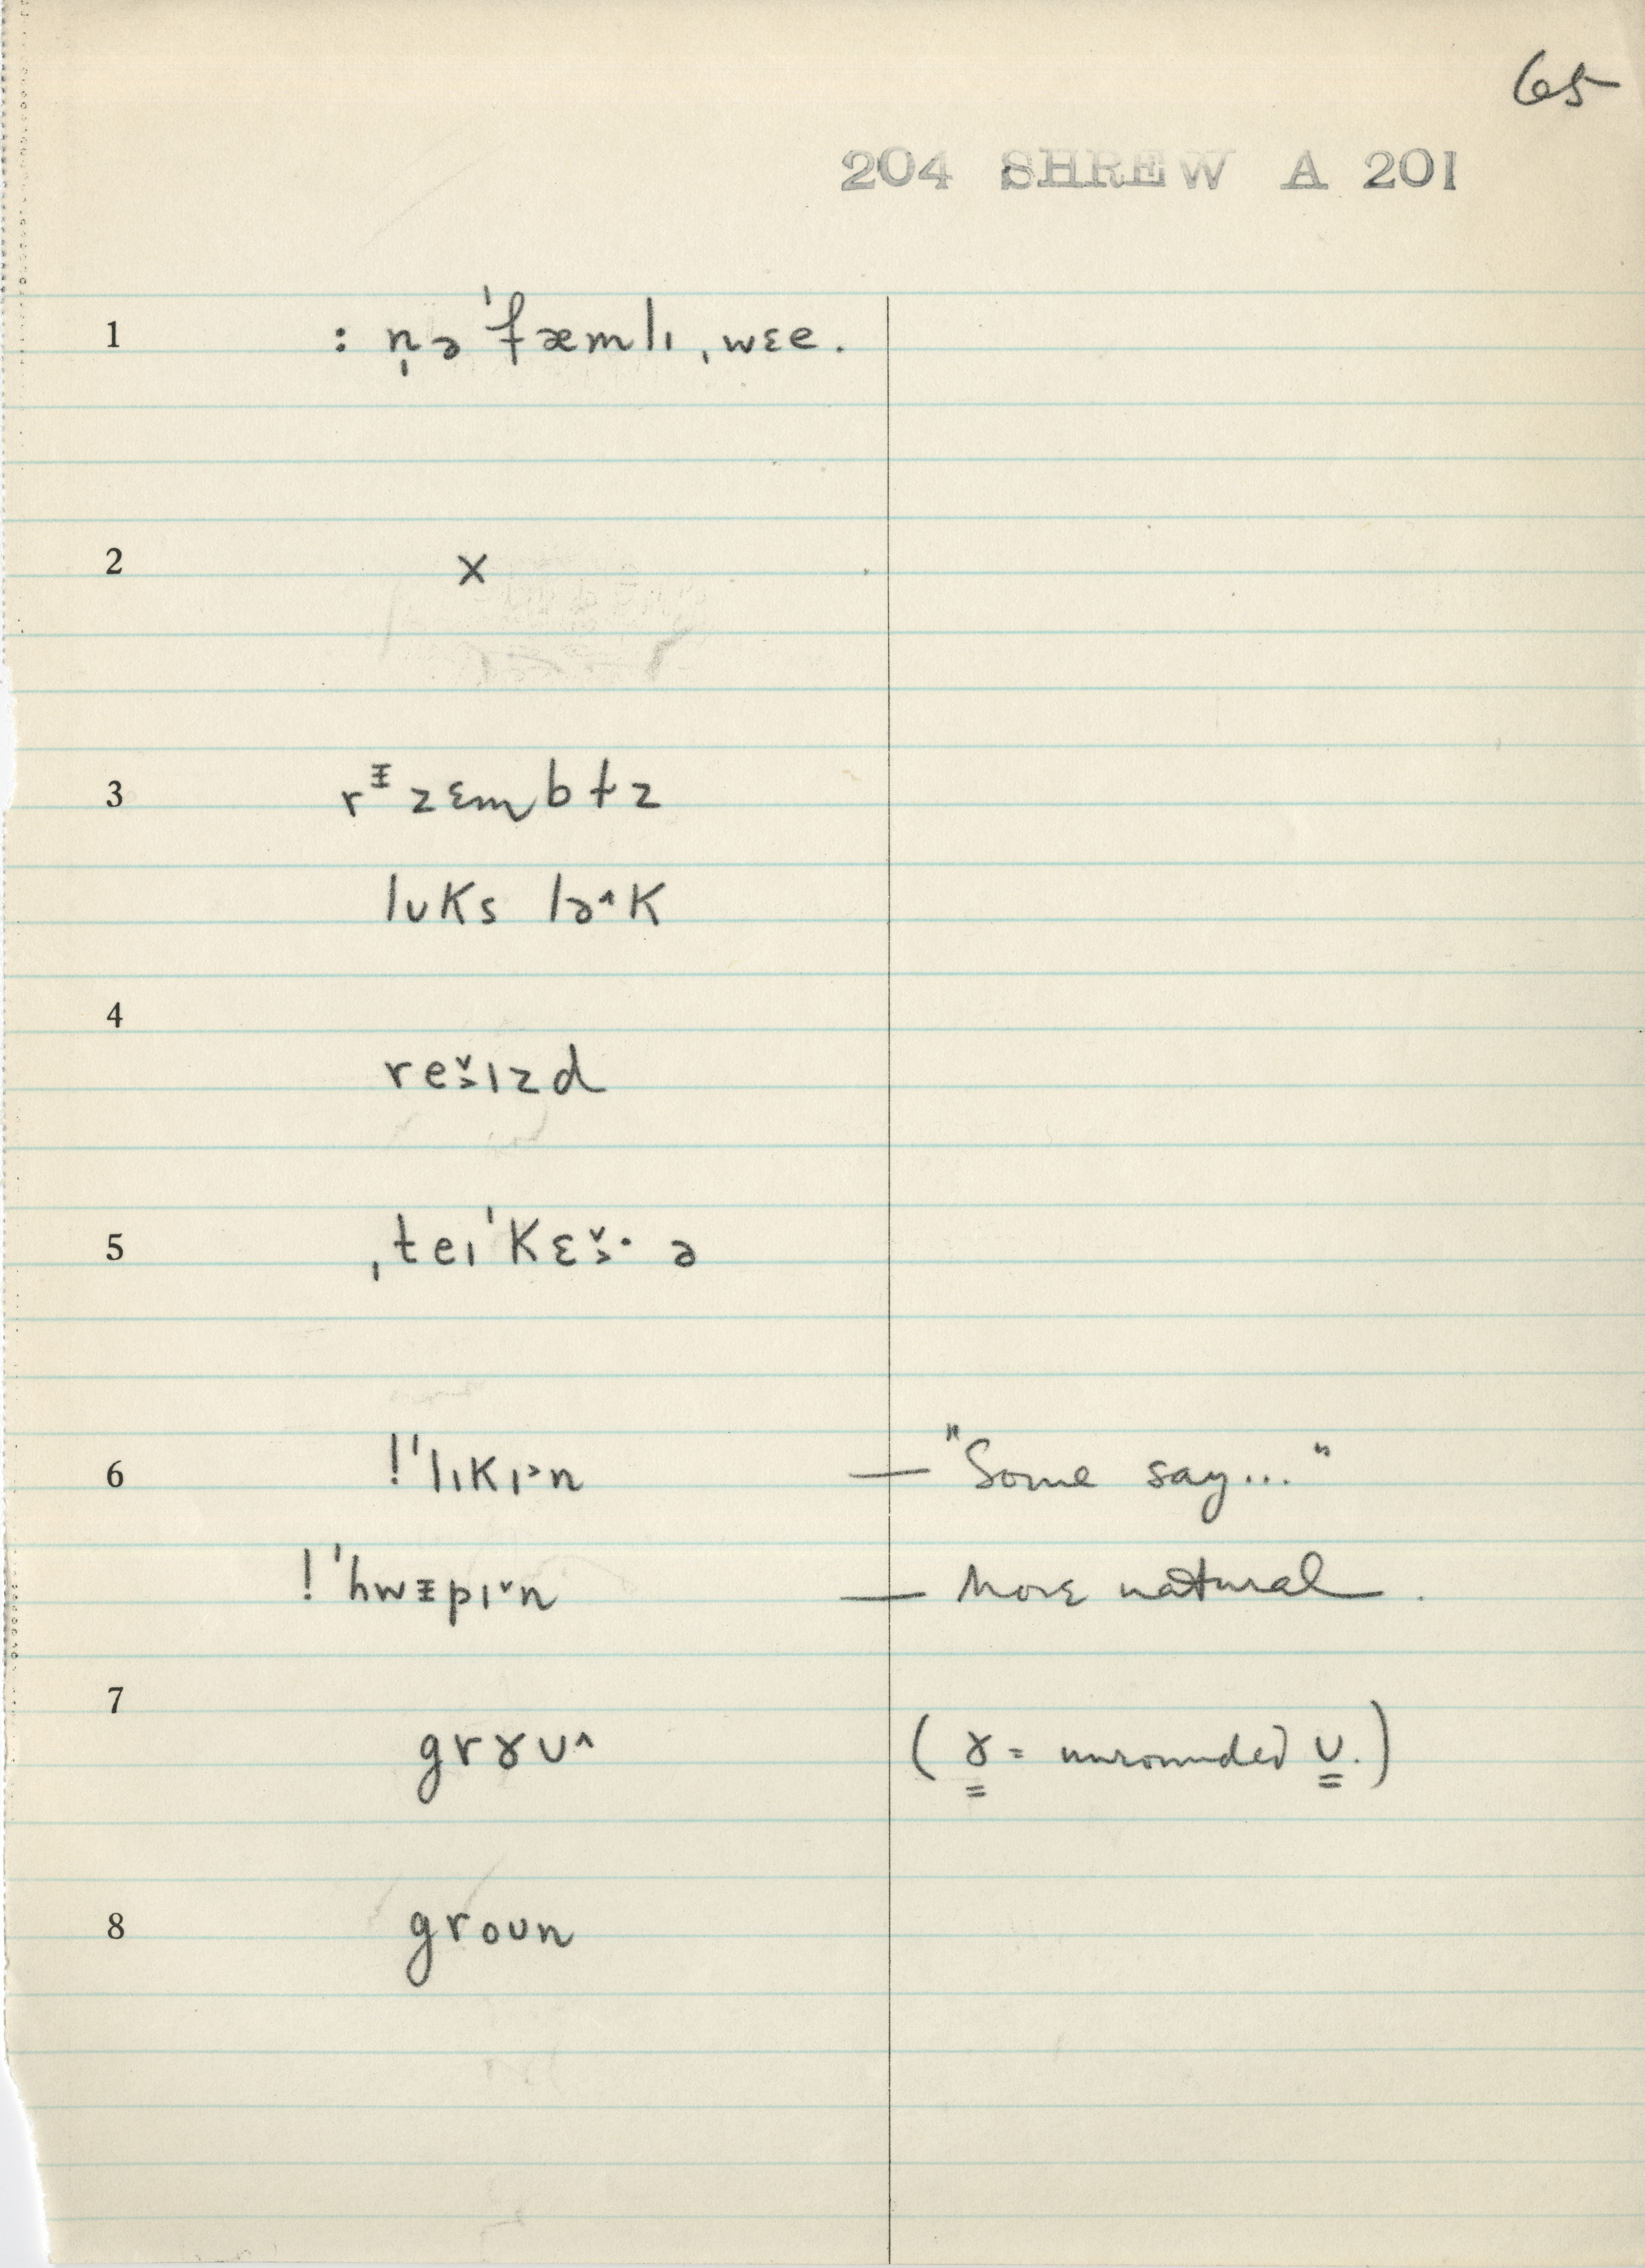 65
204 SHREW A 201
1 : n̩ə ˈfæmlɪ ˌwɛe.
2 x
3 rᵻzɛmbɫz
lʊks lə^k
4
re˅˃ɪzd
5 ˌteɪˈkɛ˅˃· ə
6 !ˈlɪkɪ˃n — "Some say..."
!ˈhwᵻpɪ˅n — More natural.
7
grɤʊ^ (ɤ = unrounded ʊ.)
8 groʊn